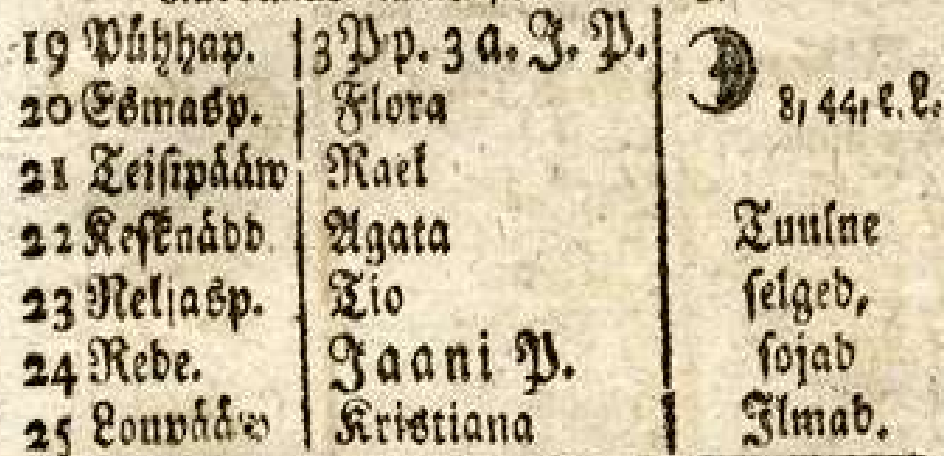 19 Pühhap. 3 Pp. 3 a. J. P.
20 Esmasp. Flora 8, 44, e. L.
21 Teisipääw Rael
22 Kesknädd. Agata Tuulne
23 Neljasp. Tio selged,
24 Rede. Jaani P. sojad
25 Loupääw Kristiana Ilmad.